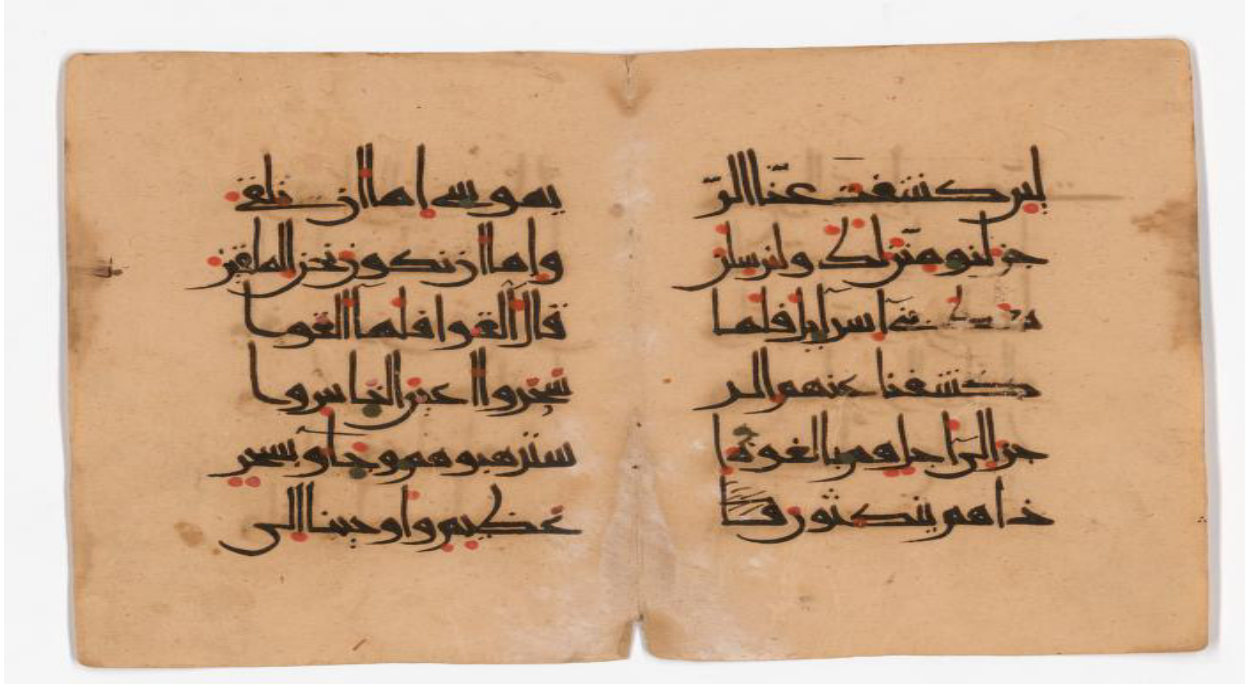 لين كشفت عنا الر
جز لنومنن لك ولنرسلن
معك بني اسرايل فلما
كشفنا عنهم الر
جز الى اجل هم بالغوه ا
ذا هم ينكثون فا
يموسى اما ان تلقي
واما ان نكون نحن الملقين
قال القوا فلما القوا
سحروا اعين الناس وا
سترهبوهم وجاو بسحر
عظيم واوحينا الى